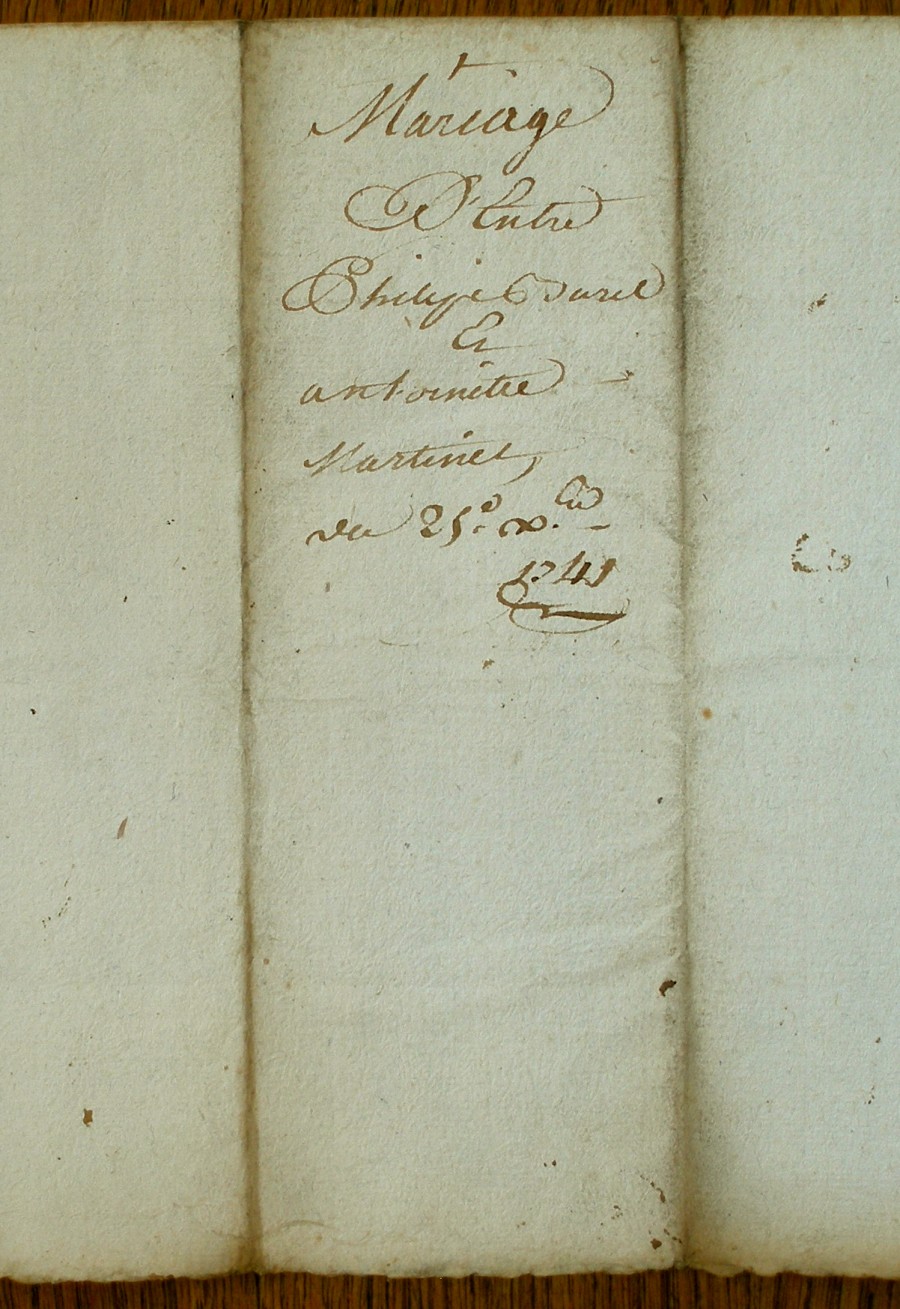 Mariage
D'Entre
Philipe
Et
antoinette
Martinet,
du 25e
1741